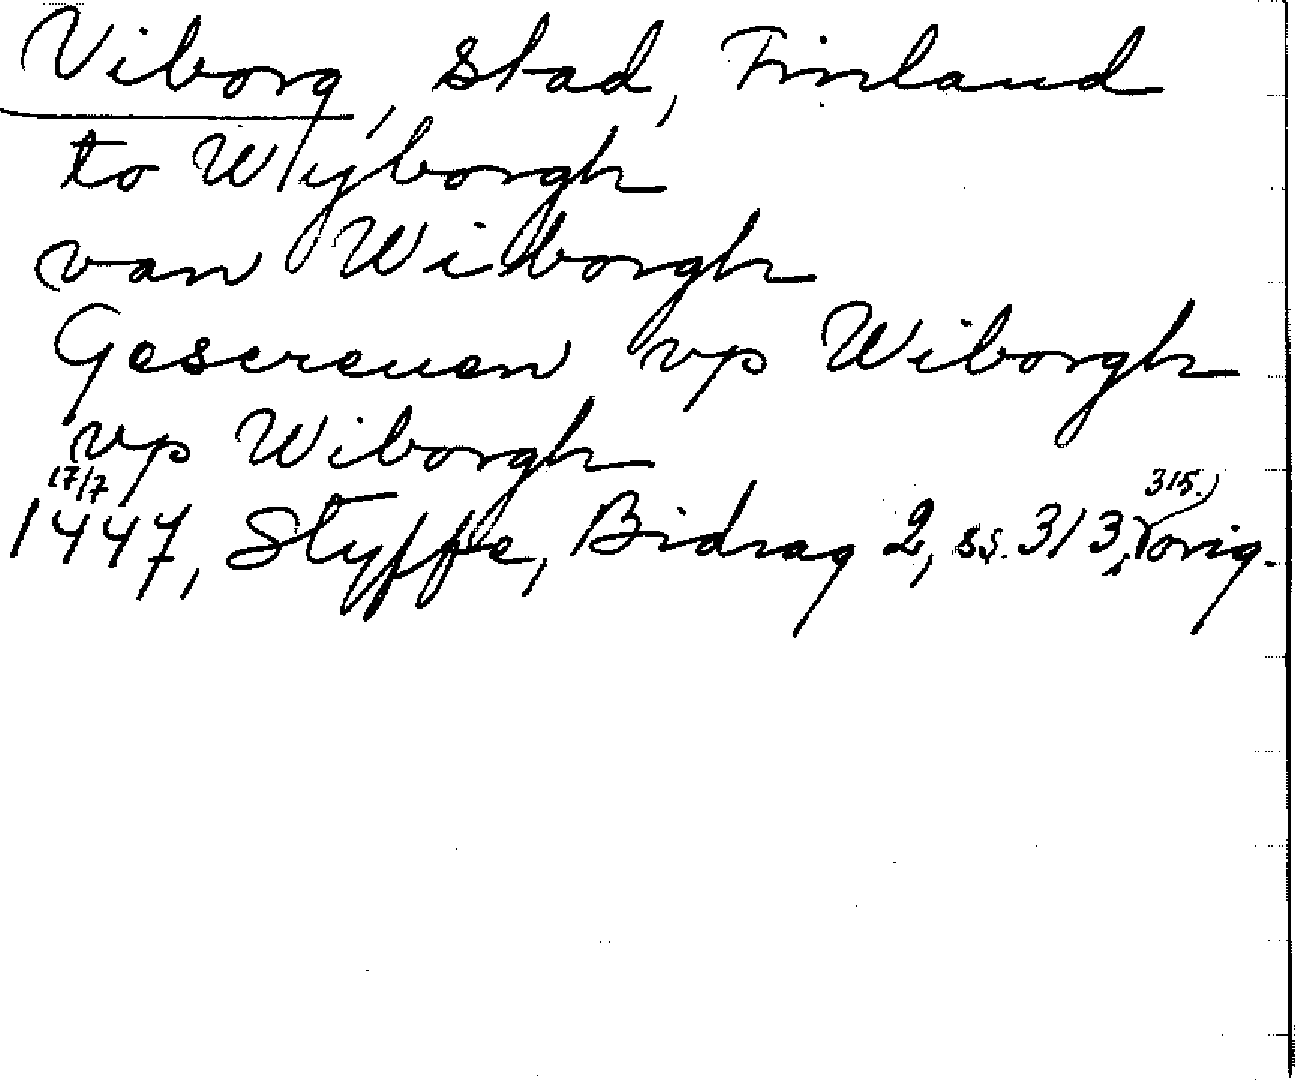 Viborg, stad, Finland
to Wyborgh
van Wiborgh
Gescreuen vp Wiborgh
vp Wiborgh
17/7 315.)
1447, Styffe, Bidrag 2, ss. 313, orig.